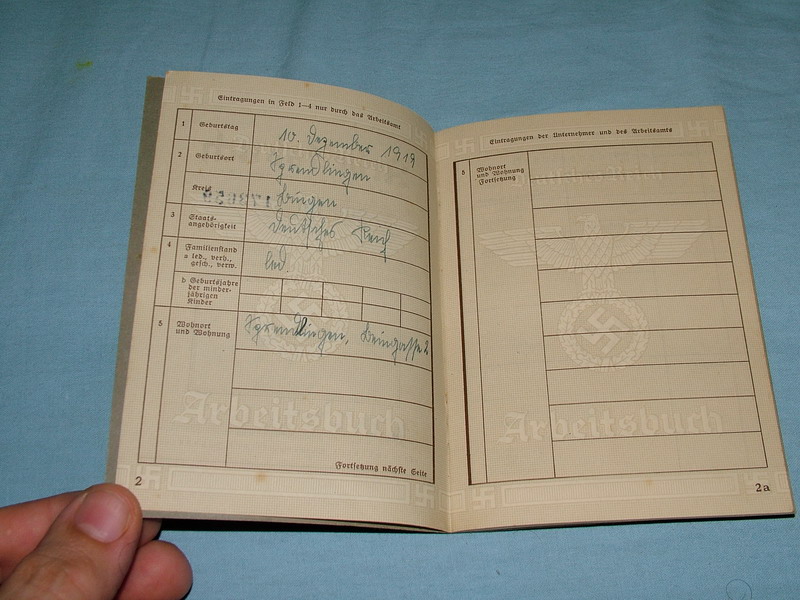 Eintragungen in Feld 1—4 nur durch das Arbeitsamt
1 Geburtstag 10. Dezember 1919
2 Geburtsort Sprendlingen
Kreis Bingen
3 Staats-
angehörigkeit Deutsches Reich
4 Familienstand
a led., verh.,
gesch., verw. led.
b Geburtsjahre
der minder-
jährigen
Kinder
5 Wohnort
und Wohnung Sprendlingen, 2
Arbeitsbuch
Fortsetzung nächste Seite
2
Eintragungen der Unternehmer und des Arbeitsamts
5 Wohnort
und Wohnung
Fortsetzung
Deutsches Reich
Arbeitsbuch
2a